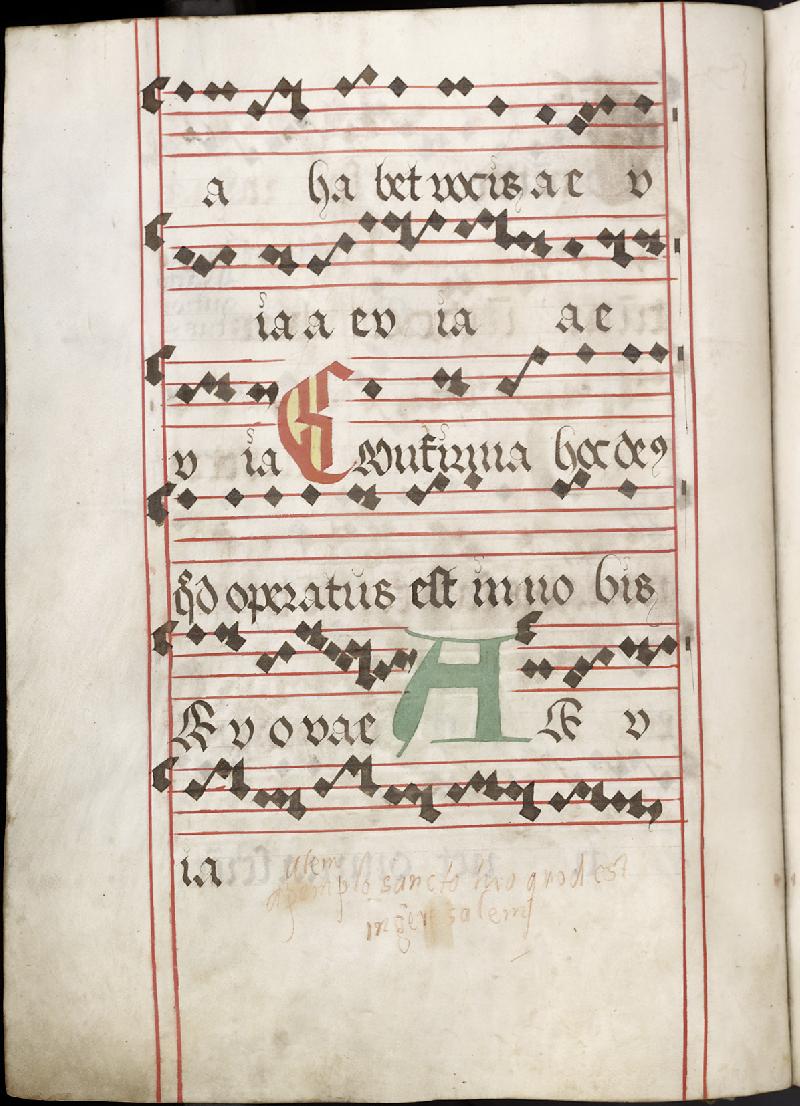 a ha bet vocis a e v
ia a ev ia a e
v ia Confirma hoc de9
qd operatus est in no bis
E v o v a e A E v
ia
a templo sancto tuo quod est